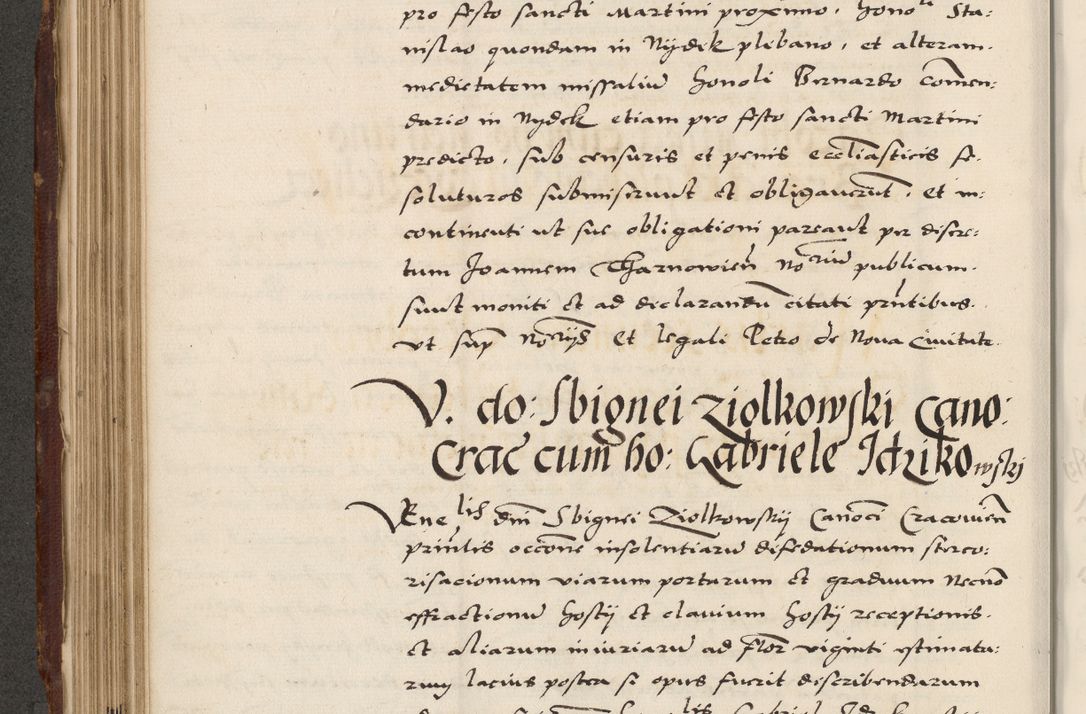 pro festo sancti Martini proximo, Honoli Sta:
nislao quondam in Nydek plebano, et alteram
medietatem missaliu Honoli Bernardo Comen:
dario in Nydek etiam pro festo sancti Martini
predicto, sub censuris et penis ecclīasticis se
soluturos submiserunt et obligaverūt. Et in:
continenti ut sue obligationi pareant per discre:
tum Joannem Tharnowień Norium publicum
sunt moniti et ad declarandū citati prntibus
ut supͣ Notrijs Et legali Petro de Nova Civitate
V. do: Sbignei Ziolkowski Cano:
Crac cum ho: Gabriele Idziko wski
Vene lis dni Sbignei Ziolkowskij Canoci Cracovień
prinlis occone insolentiaru difedationum sterco:
risacionum viarum portarum et graduum Necno
effractionu hostij et clavium hostij receptionis
et aliarum iniuriaru ad flor viginti estimata:
rum lacius postea si opus fuerit describendarum